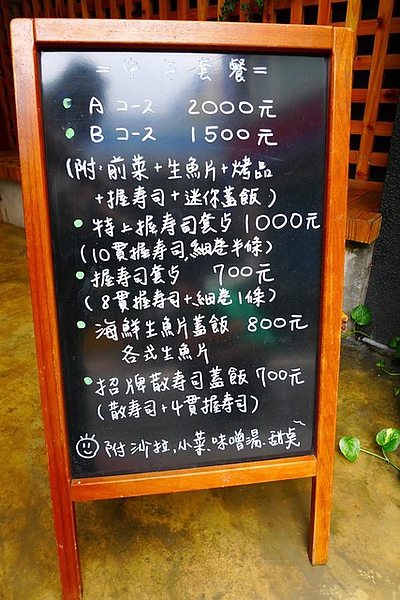 =中午套餐=
A コース 2000元
B コース 1500元
(附:前菜+生魚片+烤品
+握壽司+迷你蓋飯)
特上握壽司套歺 1000元
(10貫握壽司,細卷半條)
握壽司套歺 700元
(8貫握壽司+細卷1條)
海鮮生魚片蓋飯 800元
各式生魚片
招牌散壽司蓋飯 700元
(散壽司+4貫握壽司)
附沙拉,小菜,味噌湯,甜点~